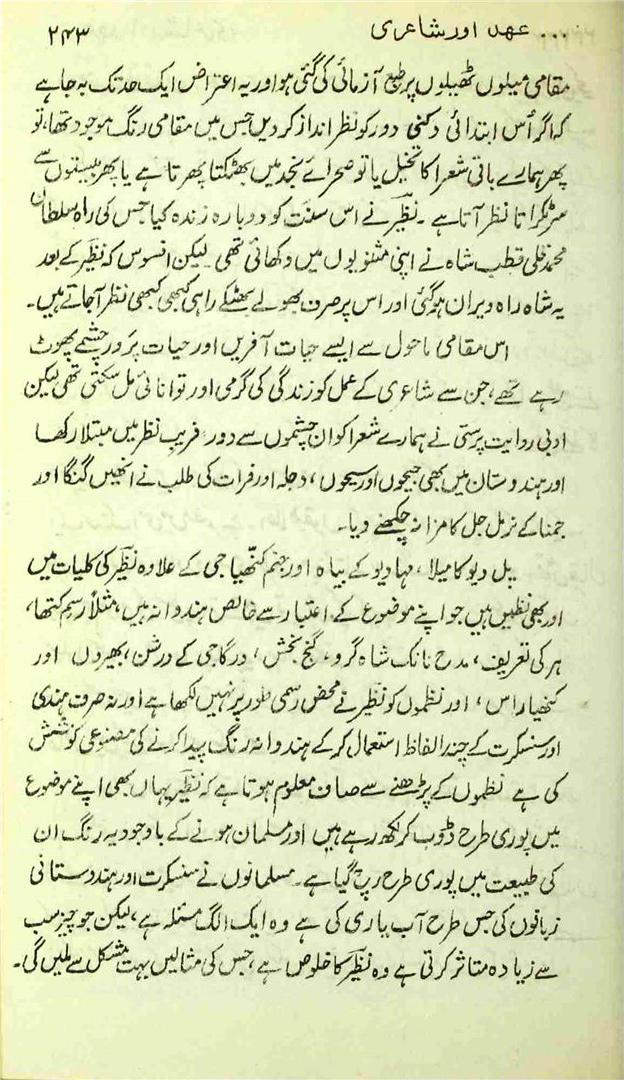 ... عہد اور شاعری ۲۴۳
مقامی میلوں ٹھیلوں پر طبع آزمائی کی گئی ہو اور یہ اعتراض ایک حد تک بہ جا ہے
کہ اگر اُس ابتدائی دکنی دور کو نظر انداز کر دیں جس میں مقامی رنگ موجود تھا، تو
پھر ہمارے باقی شعرا کا تخیل یا تو صحرائے نجد میں بھٹکتا پھرتا ہے یا پھر بیستوں سے
سر ٹکراتا نظر آتا ہے۔ نظیرؔ نے اس سنت کو دوبارہ زندہ کیا جس کی راہ سلطان
محمد قلی قطب شاہ نے اپنی مثنویوں میں دکھائی تھی۔ لیکن افسوس کہ نظیرؔ کے بعد
یہ شاہ راہ ویران ہو گئی اور اس پر صرف بھولے بھٹکے راہی کبھی کبھی نظر آ جاتے ہیں۔
اس مقامی ماحول سے ایسے حیات آفریں اور حیات پرور چشمے پھوٹ
رہے تھے، جن سے شاعری کے عمل کو زندگی کی گرمی اور توانائی مل سکتی تھی لیکن
ادبی روایت پرستی نے ہمارے شعرا کو ان چشموں سے دور فریبِ نظر میں مبتلا رکھا
اور ہندوستان میں بھی جیحوں اور سیحوں، دجلہ اور فرات کی طلب نے انھیں گنگا اور
جمنا کے نرمل جل کا مزا نہ چکھنے دیا۔
بل دیو کا میلا، مہادیو کے بیاہ اور جنم کنھیا جی کے علاوہ نظیرؔ کی کلیات میں
اور بھی نظمیں ہیں جو اپنے موضوع کے اعتبار سے خالص ہندوانہ ہیں، مثلاً رسم کتھا،
ہر کی تعریف، مدح نانک شاہ گرو، گنج بخش، درگا جی کے درشن، بھیروں اور
کنھیا راس، اور نظموں کو نظیرؔ نے محض رسمی طور پر نہیں لکھا ہے اور نہ صرف ہندی
اور سنسکرت کے چند الفاظ استعمال کر کے ہندوانہ رنگ پیدا کرنے کی مصنوعی کوشش
کی ہے نظموں کے پڑھنے سے صاف معلوم ہوتا ہے کہ نظیرؔ یہاں بھی اپنے موضوع
میں پوری طرح ڈوب کر لکھ رہے ہیں اور مسلمان ہونے کے باوجود یہ رنگ ان
کی طبیعت میں پوری طرح رچ گیا ہے۔ مسلمانوں نے سنسکرت اور ہندوستانی
زبانوں کی جس طرح آب یاری کی ہے وہ ایک الگ مسئلہ ہے، لیکن جو چیز سب
سے زیادہ متاثر کرتی ہے وہ نظیرؔ کا خلوص ہے، جس کی مثالیں بہت مشکل سے ملیں گی۔